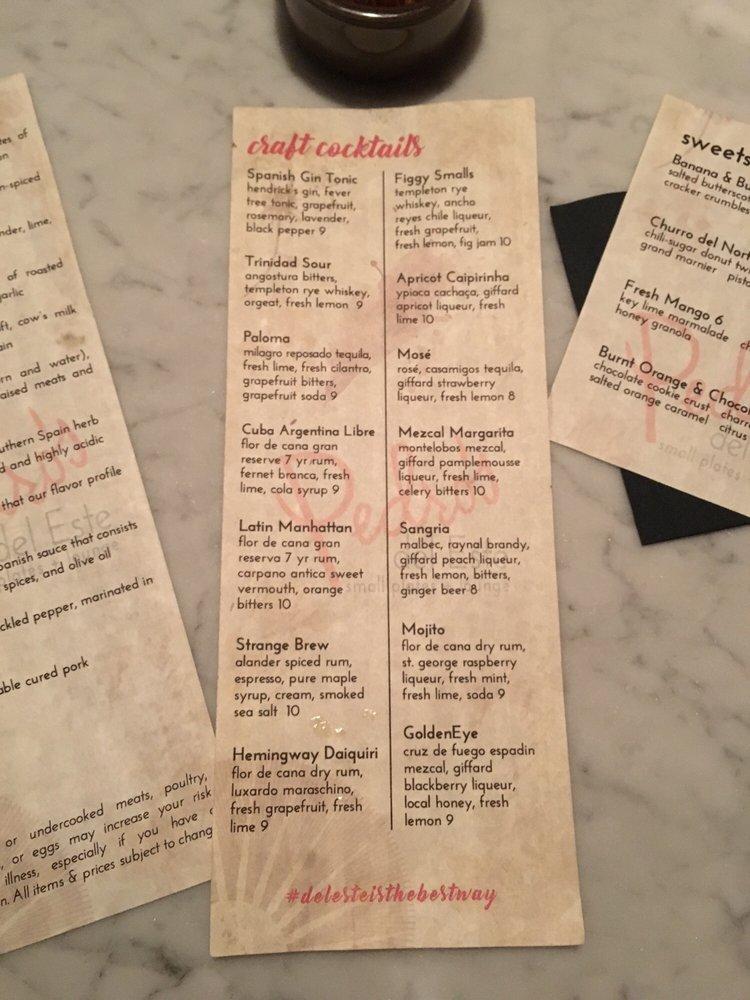 tes of
on
n-spiced
nder, lime,
of roasted
garlic
ft, cow's milk
ain
rn and water),
aised meats and
uthern Spain herb
d and highly acidic
that our flavor profile
panish sauce that consists
spices, and olive oil
ckled pepper, marinated in
able cured pork
or undercooked meats, poultry,
, or eggs may increase your risk
illness, especially if you have
n. All items & prices subject to chang
del Este
craft cocktails
Spanish Gin Tonic
hendrick's gin, fever
tree tonic, grapefruit,
rosemary, lavender,
black pepper 9
Trinidad Sour
angostura bitters,
templeton rye whiskey,
orgeat, fresh lemon 9
Paloma
milagro reposado tequila,
fresh lime, fresh cilantro,
grapefruit bitters,
grapefruit soda 9
Cuba Argentina Libre
flor de cana gran
reserve 7 yr rum,
fernet branca, fresh
lime, cola syrup 9
Latin Manhattan
flor de cana gran
reserva 7 yr rum,
carpano antica sweet
vermouth, orange
bitters 10
Strange Brew
alander spiced rum,
espresso, pure maple
syrup, cream, smoked
sea salt 10
Hemingway Daiquiri
flor de cana dry rum,
luxardo maraschino,
fresh grapefruit, fresh
lime 9
Figgy Smalls
templeton rye
whiskey, ancho
reyes chile liqueur,
fresh grapefruit,
fresh lemon, fig jam 10
Apricot Caipirinha
ypioca cachaça, giffard
apricot liqueur, fresh
lime 10
Mosé
rosé, casamigos tequila,
giffard strawberry
liqueur, fresh lemon 8
Mezcal Margarita
montelobos mezcal,
giffard pamplemousse
liqueur, fresh lime,
celery bitters 10
Sangria
malbec, raynal brandy,
giffard peach liqueur,
fresh lemon, bitters,
ginger beer 8
Mojito
flor de cana dry rum,
st. george raspberry
liqueur, fresh mint,
fresh lime, soda 9
GoldenEye
cruz de fuego espadin
mezcal, giffard
blackberry liqueur,
local honey, fresh
lemon 9
#delesteisthebestway
sweets
Banana & Bu
salted butterscot
cracker crumbles
Churro del Nort
chili-sugar donut tw
grand marnier pista
Fresh Mango 6
key lime marmalade ch
honey granola
Burnt Orange & Chocol
chocolate cookie crust charre
salted orange caramel citrus
del
small plates